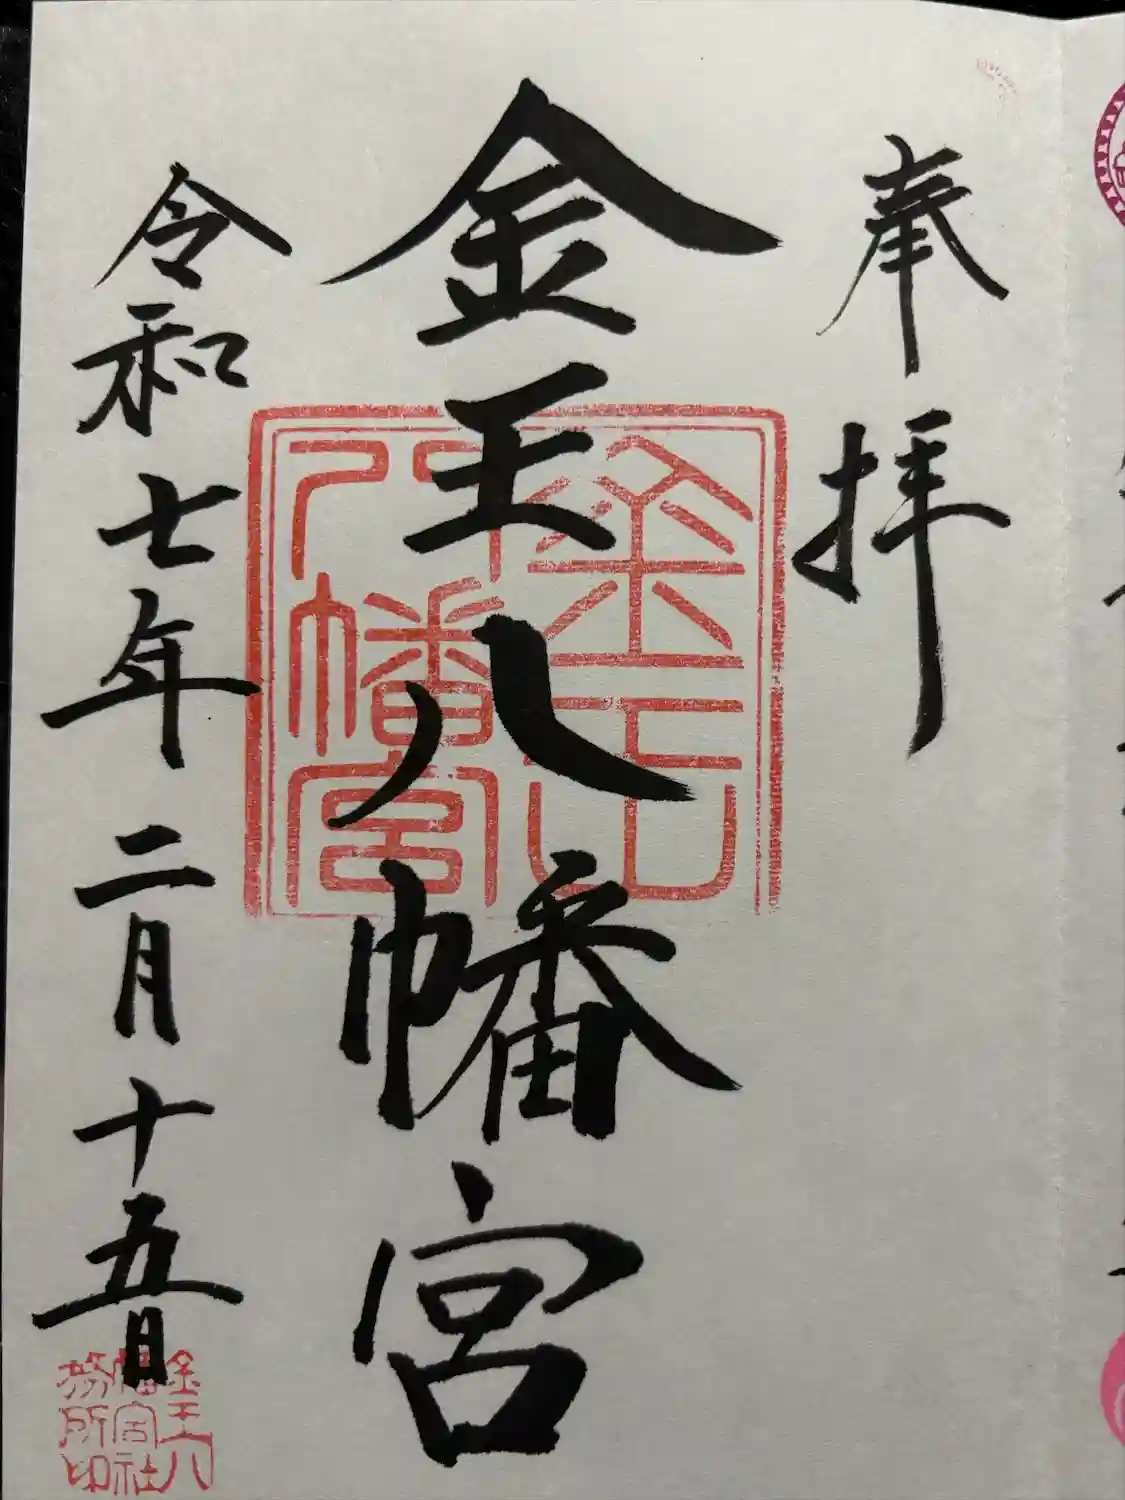 奉拝
金王八幡宮
令和七年二月十五日
金王八幡宮社務所印